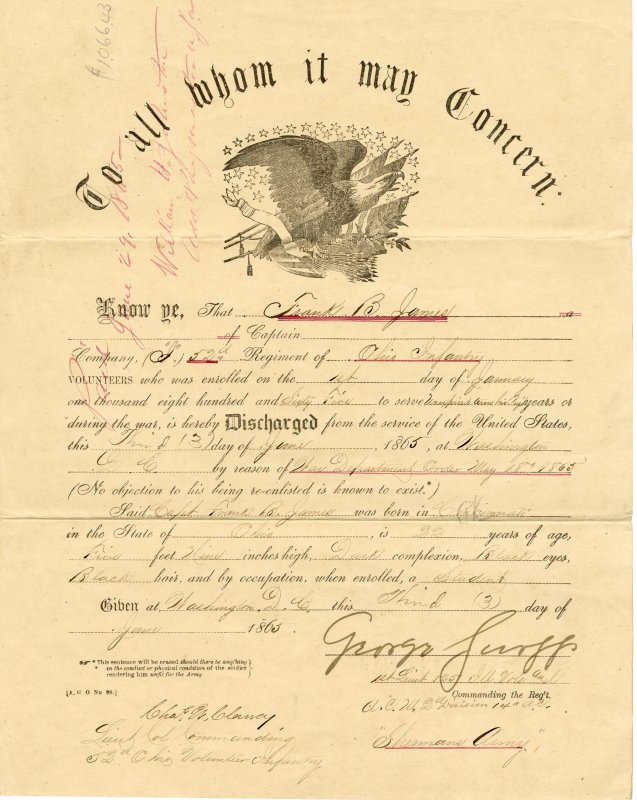 106643
To all whom it may Concern:
Know ye, That Frank B. James a
of Captain
Company, 52d Regiment of Ohio Infantry
VOLUNTEERS who was enrolled on the 1st day of January
one thousand eight hundred and Sixty Five to serve years or
during the war, is hereby Discharged from the service of the United States,
this Third (3) day of June, 1865, at Washington
D. C. by reason of War Department Order May 15" 1865
(No objection to his being re-enlisted is known to exist.*)
Said Capt. Frank B. James was born in Cincinnati
in the State of Ohio, is years of age,
Five feet Nine inches high, Dark complexion, Black eyes,
Black hair, and by occupation, when enrolled, a Student
Given at Washington, D. C. this Third (3) day of
June 1865.
* This sentence will be erased should there be anything
in the conduct or physical condition of the soldier
rendering him unfit for the Army
[A. G O No. 99.]
George
1st Lieut 125 Ill. Vols.
Commanding the Reg't.
A. C. M. 2 Division 14" A. C.
"Shermans Army"
Chas. W. Clancy
Lieut Col Commanding
52d Ohio Volunteer Infantry
June 29. 1865